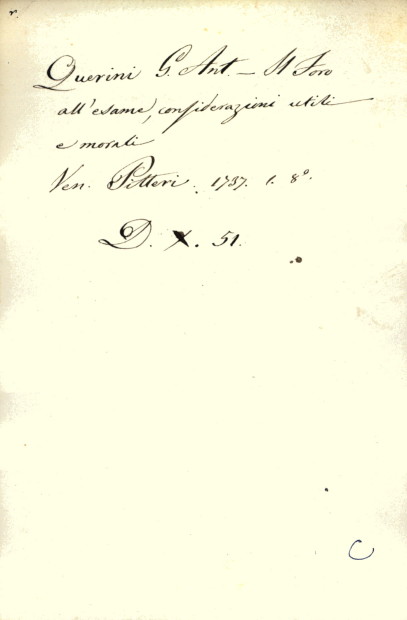 r.
Querini G. Ant. – Il Foro
all'esame, considerazioni utili
e morali
Ven. Pitteri. 1737. 1. 8º.
D. X. 51.
C